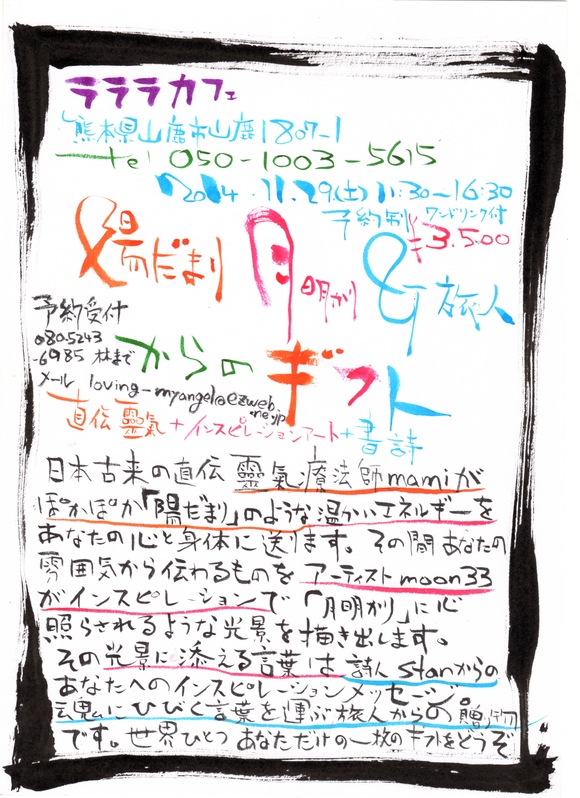 ラララカフェ
熊本県山鹿市山鹿1807-1
tel 050-1003-5615
2014.11.29(土)11:30〜16:30
予約制 ワンドリンク付
¥3.500
陽だまり 月明かり & 旅人
からのギフト
予約受付
080-5243
-6985 林まで
メール loving-myangel@ezweb
.ne.jp
直伝靈氣+インスピレーションアート+書詩
日本古来の直伝 靈氣療法師mamiが
ぽかぽか「陽だまり」のような温かいエネルギーを
あなたの心と身体に送ります。その間あなたの
雰囲気から伝わるものをアーティストmoon33
がインスピレーションで「月明かり」に心
照らされるような光景を描き出します。
その光景に添える言葉は詩人stanからの
あなたへのインスピレーションメッセージ。
魂にひびく言葉を運ぶ旅人からの贈り物
です。世界ひとつ あなただけの一枚のギフトをどうぞ